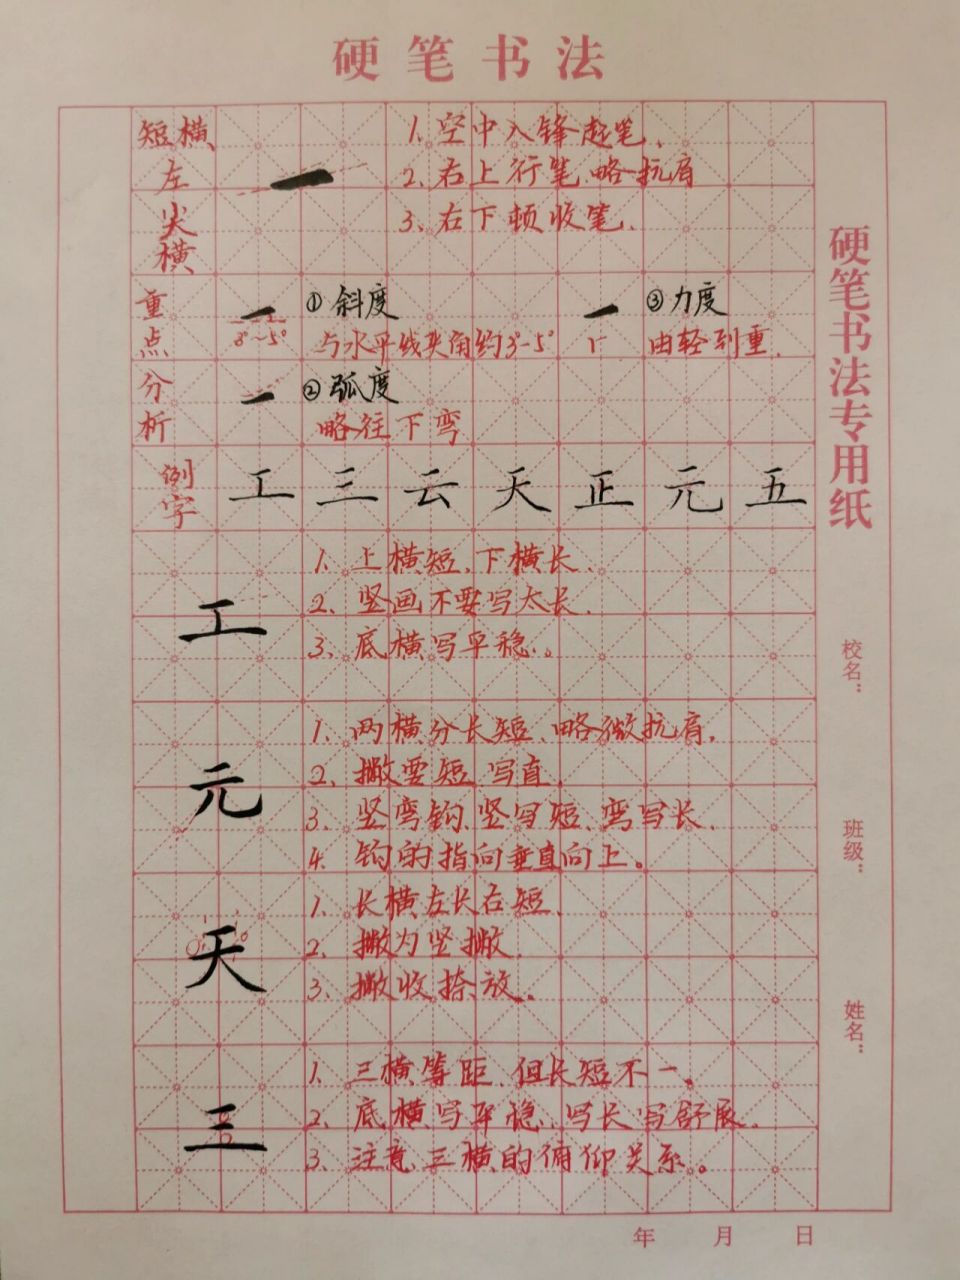 硬笔书法
短横
左
尖
横
1、空中入锋起笔、
2、右上行笔、略抗肩
3、右下顿收笔、
重
点
分
析
①斜度
3°~5°
与水平线夹角约3°-5°
③力度
由轻到重、
②弧度
略往下弯
例
字
工三云天正元五
工
1、上横短、下横长、
2、竖画不要写太长、
3、底横写平稳、。
元
1、两横分长短、略微抗肩、
2、撇要短、写直、
3、竖弯钩、竖写短、弯写长、
4、钩的指向垂直向上。
天
1、长横左长右短、
2、撇为竖撇、
3、撇收捺放。
三
1、三横等距、但长短不一、
2、底横写平稳、写长写舒展、
3、注意三横的俯仰关系。
硬笔书法专用纸
校名：
班级：
姓名：
年 月 日